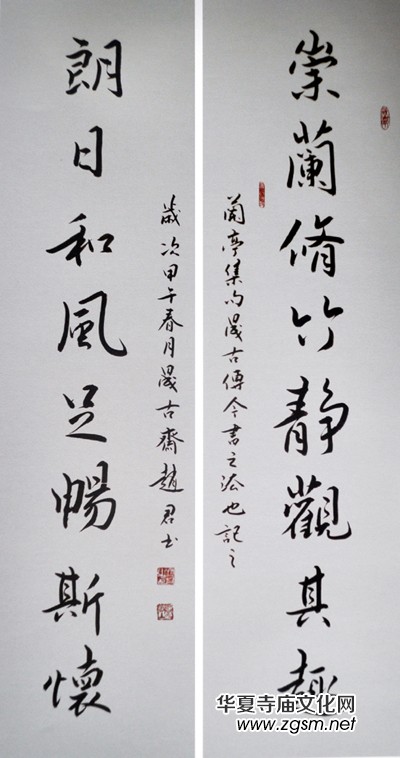 崇蘭脩竹靜觀其趣
蘭亭集句晟古傳今書之法也記之
朗日和風足暢斯懷
歲次甲午春月晟古齋趙君書
华夏寺庙文化网
www.zgsm.net